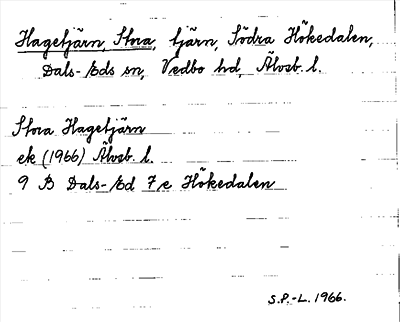 Hagetjärn, Stora, tjärn, Södra Hökedalen,
Dals-Eds sn, Vedbo hd, Älvsb. l.
Stora Hagetjärn
ek (1966) Älvsb. l.
9 B Dals-Ed 7e Hökedalen
S.P.-L. 1966.